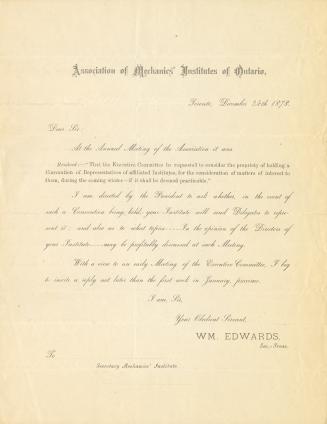 Association of Mechanics' Institutes of Ontario.
Toronto, December 24th 1878.
Dear Sir:
At the Annual Meeting of the Association it was
Resolved:—"That the Executive Committee be requested to consider the propriety of holding a
Convention of Representatives of affiliated Institutes, for the consideration of matters of interest to
them, during the coming winter—if it shall be deemed practicable."
I am directed by the President to ask whether, in the event of
such a Convention being held, your Institute will send Delegates to repre-
sent it; and also as to what topics—In the opinion of the Directors of
your Institute—may be profitably discussed at such Meeting.
With a view to an early Meeting of the Executive Committee, I beg
to invite a reply not later than the first week in January, proximo.
I am, Sir,
Your Obedient Servant,
WM. EDWARDS,
Sec.-Treas.
To
Secretary Mechanics' Institute.